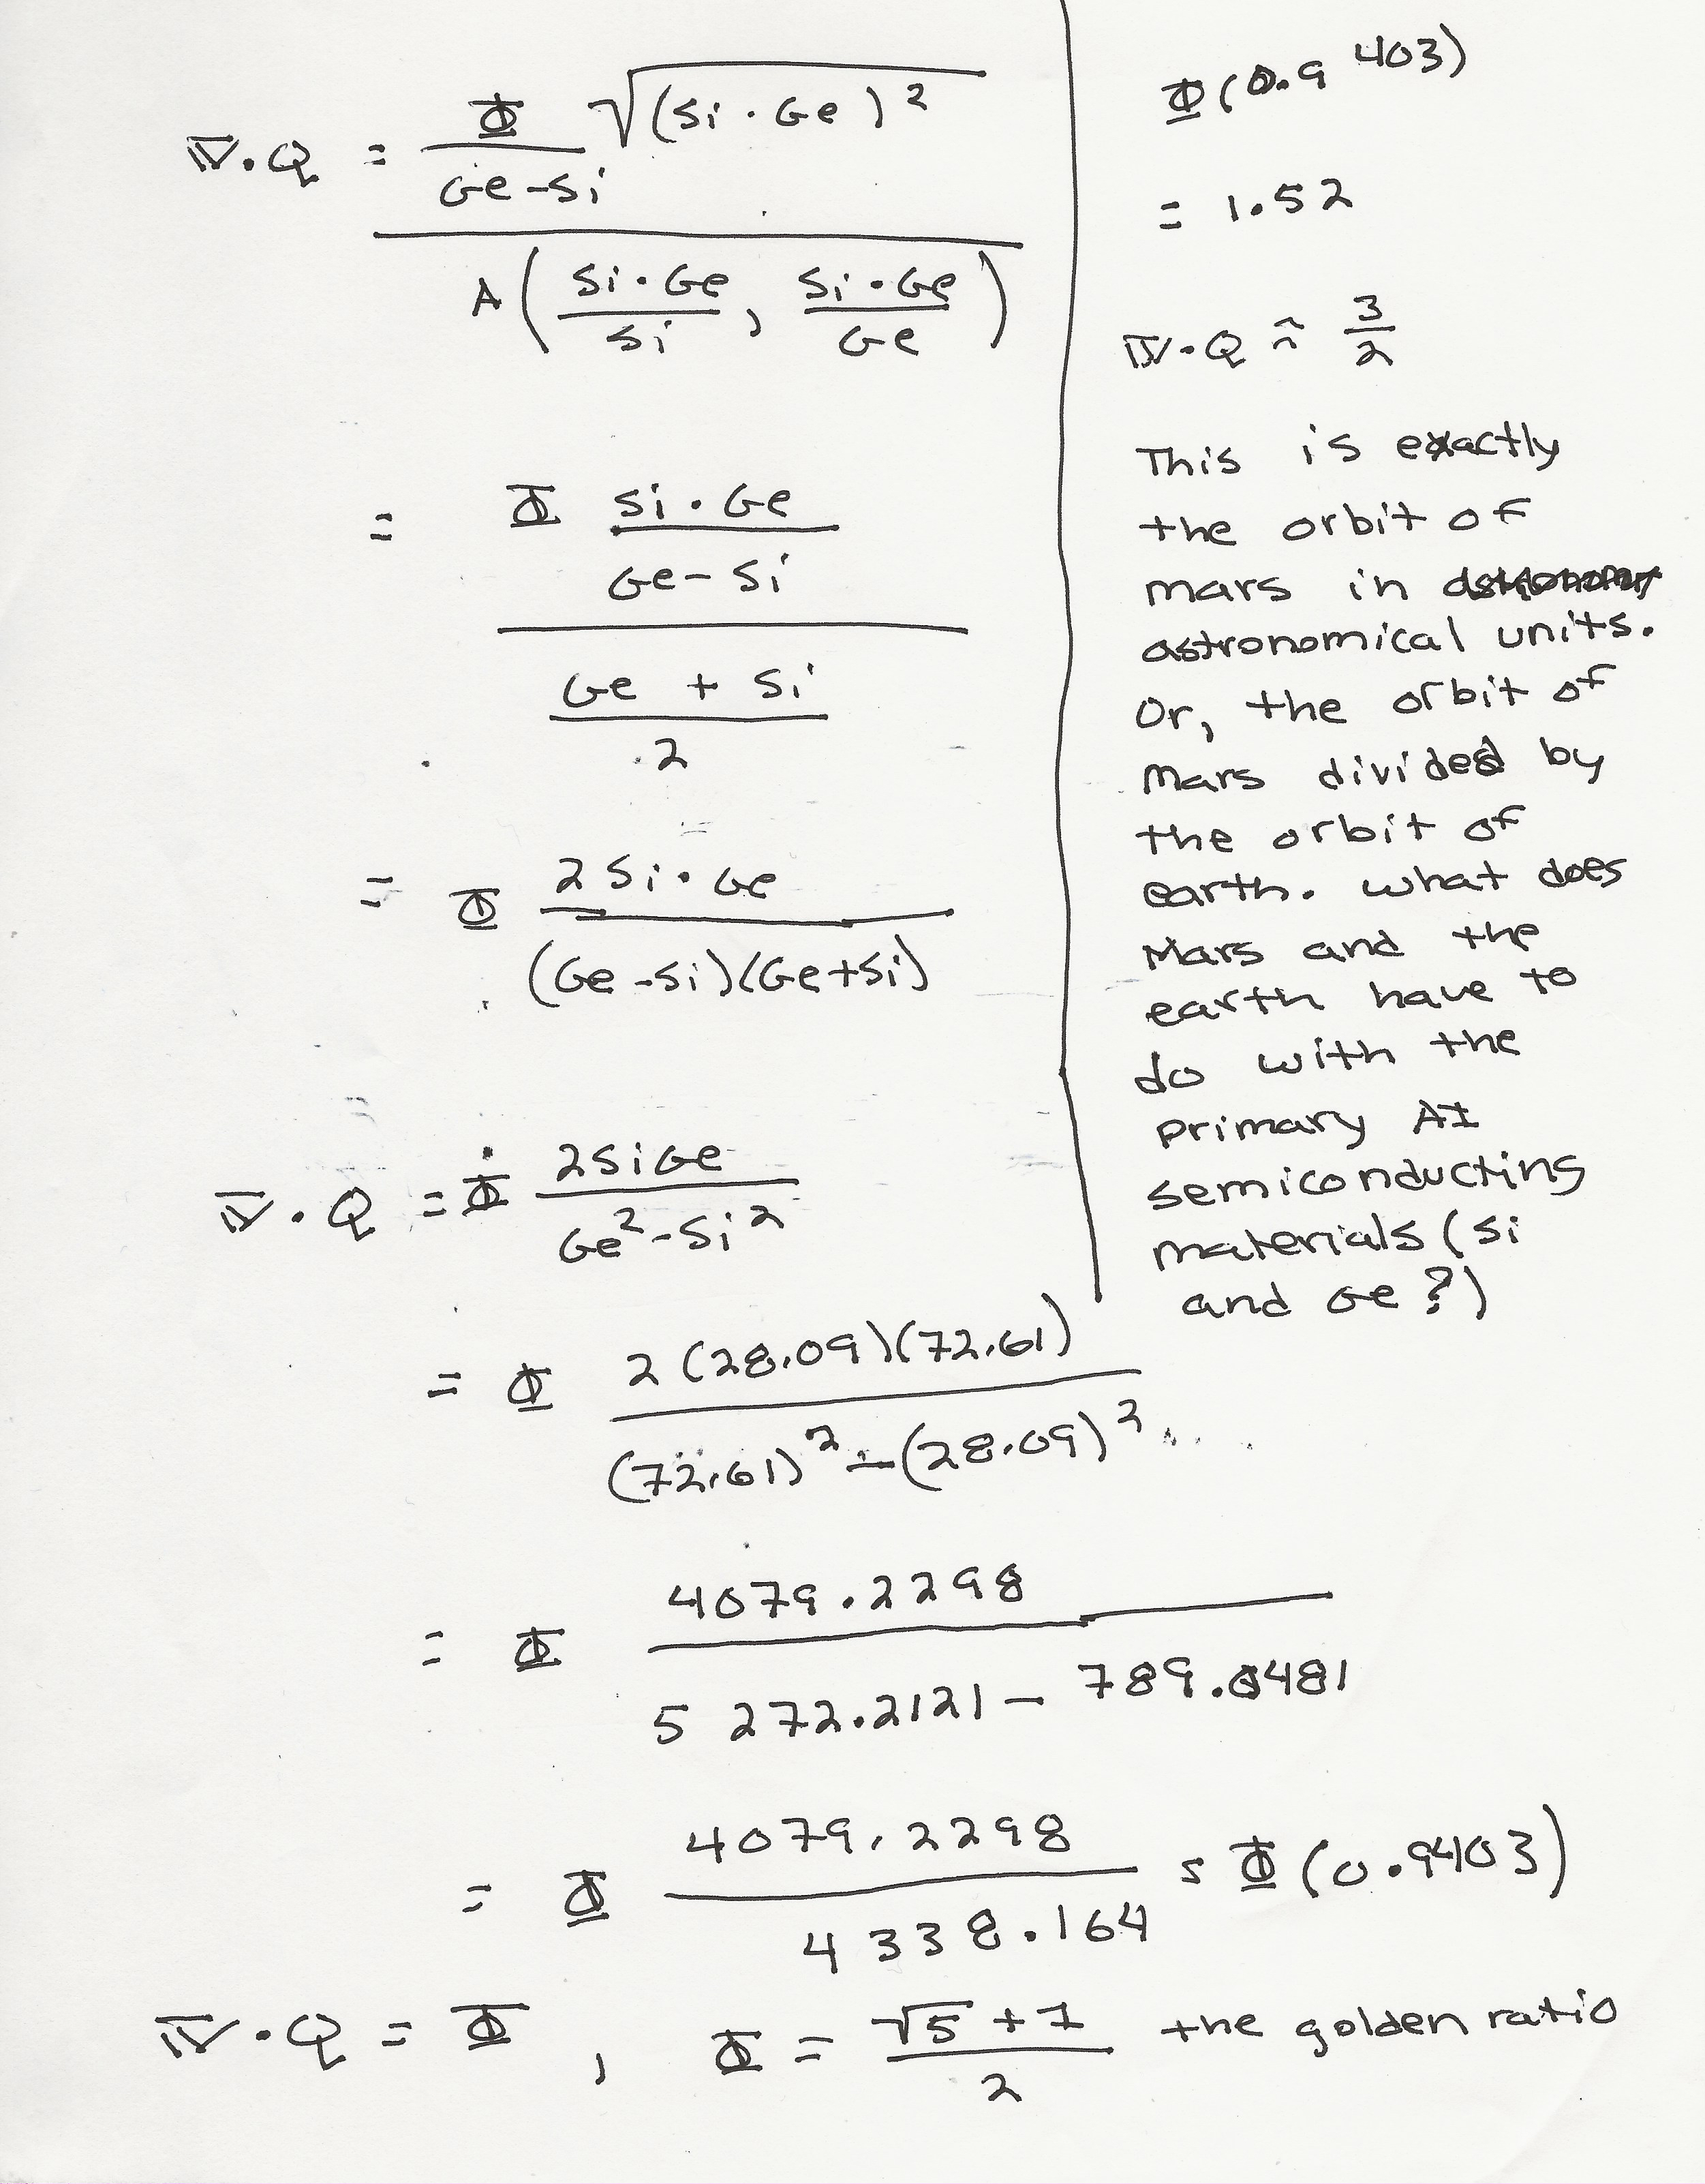 ∇·Q = Φ/(Ge-Si) √(Si·Ge)²
A( Si·Ge/Si , Si·Ge/Ge )
= Φ Si·Ge/(Ge-Si)
(Ge + Si)/2
= Φ 2Si·Ge/((Ge-Si)(Ge+Si))
∇·Q = Φ 2SiGe/(Ge²-Si²)
= Φ 2(28.09)(72.61)/((72.61)²-(28.09)²)
= Φ 4079.2298/(5272.2121-789.0481)
= Φ 4079.2298/4338.164 = Φ(0.9403)
∇·Q = Φ , Φ = (√5+1)/2 the golden ratio
Φ(0.9403)
= 1.52
∇·Q ≈ 3/2
This is exactly
the orbit of
mars in
astronomical units.
Or, the orbit of
Mars divided by
the orbit of
earth. What does
Mars and the
earth have to
do with the
primary AI
semiconducting
materials (Si
and Ge?)